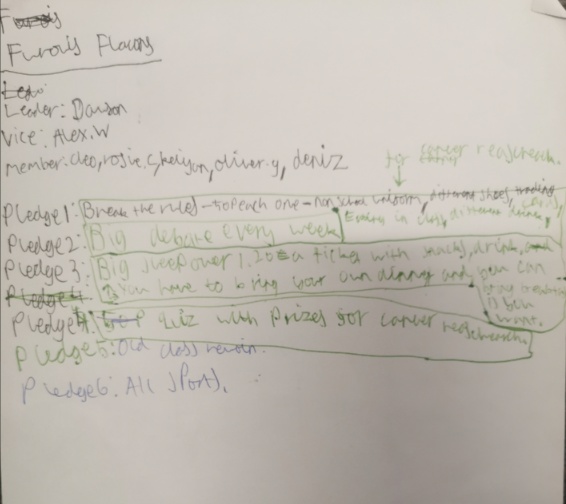 Furois Flacons
Leader: Dawson
Vice: Alex.W
member: cleo, rosie, Sheiyun, oliver.y, deniz
for cancer reaserch.
Pledge 1: Break the rules - 50P each one - non school uniform, different shoes, trading cards,
Eating in class, different drinks,
Pledge 2: Big debate every week
Pledge 3: Big sleepover 1.20 a ticket with snacks, drink,
You have to bring your own dinny and you can
bring
if you
want.
Pledge 4: quiz with Prizes for cancer reaserch.
Pledge 5: old class reunion.
Pledge 6: All sports.